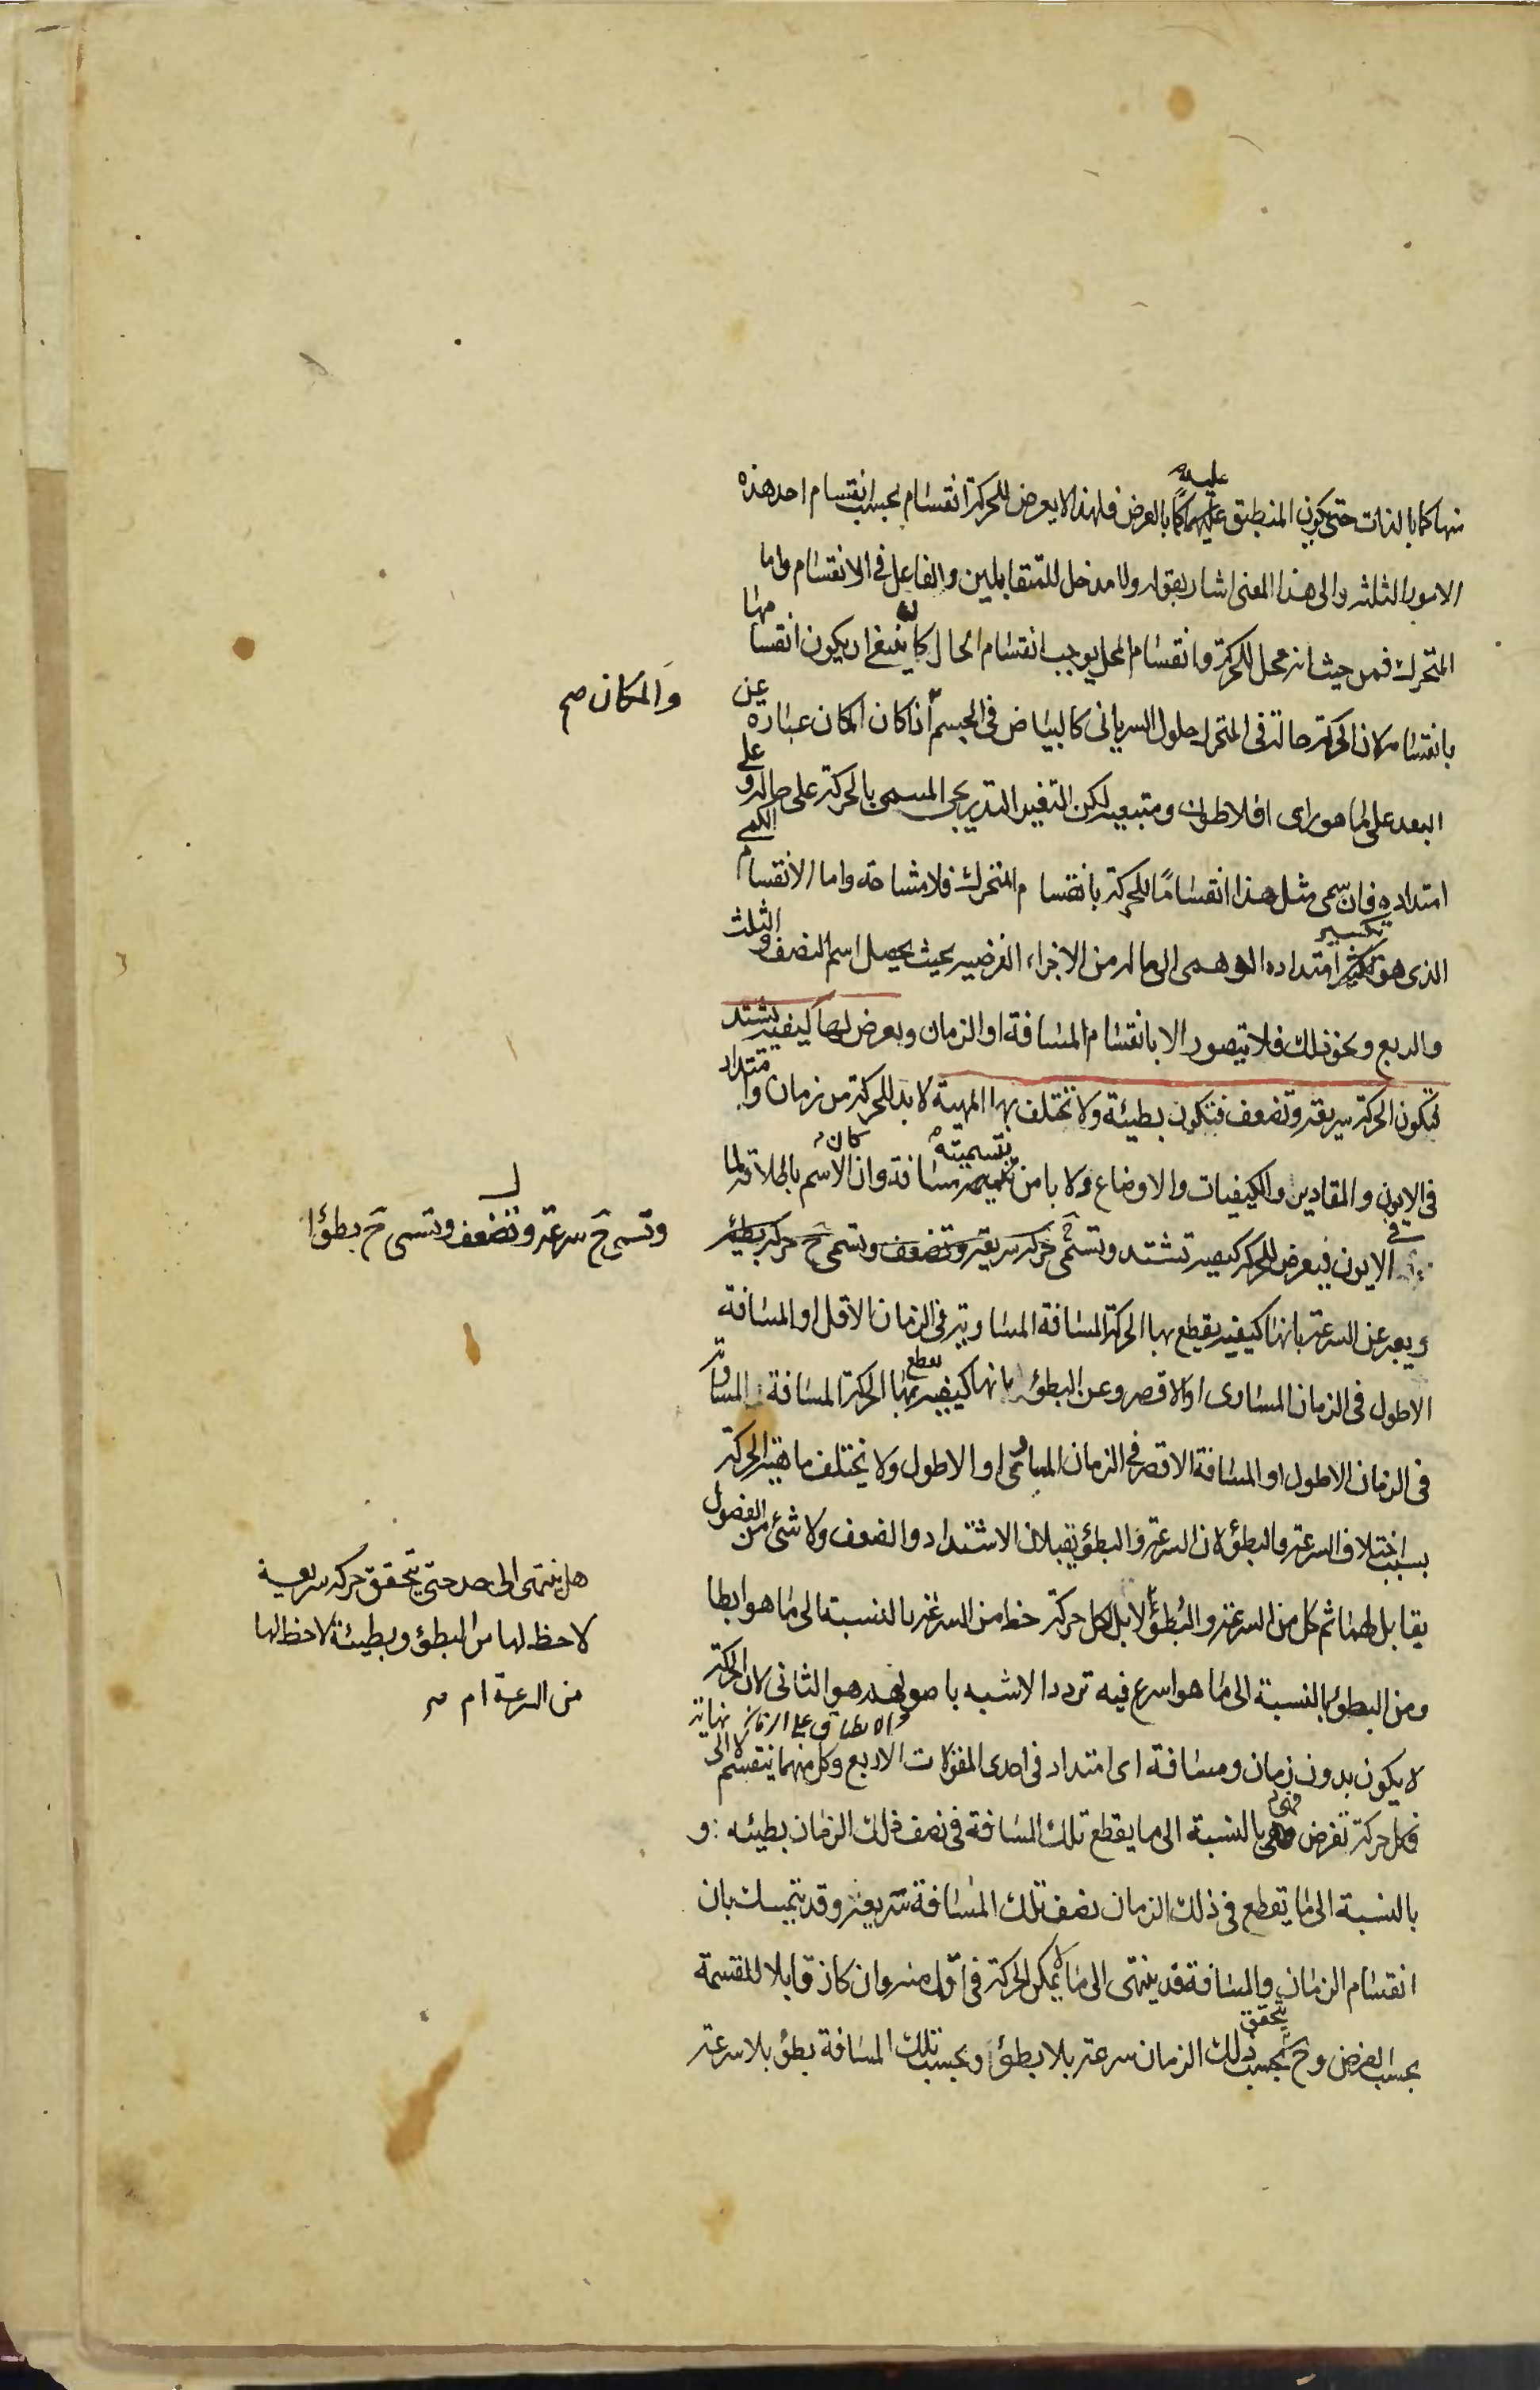 منها كما بالذات حتى يكون المنطبق عليه كما بالعرض فلهذا لا يعرض للحركة انقسام بحسب انقسام احد هذه
الامور الثلثه والى هذا المعنى اشار بقوله ولا مدخل للمتقابلين والفاعل في الانقسام واما
المتحرك فمن حيث انه محل للحركة وانقسام المحل يوجب انقسام الحال كان ينبغي ان يكون انقسامها
بانقسامه لان الحركة حالة في المتحرك حلول السرياني كالبياض في الجسم اذا كان المكان عبارة عن
والمكان صح
البعد على ما هو راى افلاطون ومتبعيه لكن التغير التدريجى المسمى بالحركة على حاله و على
امتداده فان سمى مثل هذا انقساما للحركة بانقسام المتحرك فلا مشاحة واما الانقسام الكمى
الذى هو تكسير امتداده الوهمى الى ماله من الاجزاء الفرضيه بحيث يحصل اسم النصف و الثلث
والربع ونحو ذلك فلا يتصور الا بانقسام المسافة او الزمان ويعرض لها كيفية يشتد
فتكون الحركة سريعة وتضعف فتكون بطيئة ولا تختلف بها المهية لا بد للحركة من زمان وامتداد
فى الايون والمقادير والكيفيات والاوضاع ولا باس بتسميته مسافة وان كان الاسم باطلاقه لما
فى الايون فيعرض للحركة كيفية تشتد وتسمى حركة سريعة وتضعف وتسمى ح حركة بطيئة
وتسمى ح سرعة وتضعف وتسمى ح بطؤا
ويعبر عن السرعة بانها كيفية يقطع بها الحركة المسافة المساوية فى الزمان الاقل او المسافة
الاطول فى الزمان المساوى او الاقصر وعن البطؤ بانها كيفية يقطع بها الحركة المسافة المساوية
فى الزمان الاطول او المسافة الاقصر فى الزمان المساوى او الاطول ولا يختلف ماهية الحركة
بسبب اختلاف السرعة والبطؤ لان السرعة والبطؤ يقبلان الاشتداد والضعف ولا شئ من الفصول
يقابل لهما ثم كل من السرعة والبطؤ لا بل لكل حركة حظ من السرعة بالنسبة الى ما هو ابطا
هل ينتهى الى حد حتى يتحقق حركة سريعة
لا حظ لها من البطؤ وبطيئة لا حظ لها
من السرعة ام صح
ومن البطؤ بالنسبة الى ما هو اسرع فيه تردد الاشبه باصولهم هو الثانى لان الحركة
لا يكون بدون زمان ومسافة اى امتداد فى احدى المقولات الاربع وكل منهما ينقسم لا الى نهاية
فكل حركة تفرض فهى بالنسبة الى ما يقطع تلك المسافة فى نصف ذلك الزمان بطيئه و
بالنسبة الى ما يقطع فى ذلك الزمان نصف تلك المسافة سريعة وقد يتمسك بان
انقسام الزمان والمسافة قد ينتهى الى ما لا يمكن الحركة فى اقل منه وان كان قابلا للقسمة
بحسب الفرض وح يتحقق بحسب ذلك الزمان سرعة بلا بطؤ وبحسب تلك المسافة بطؤ بلا سرعة